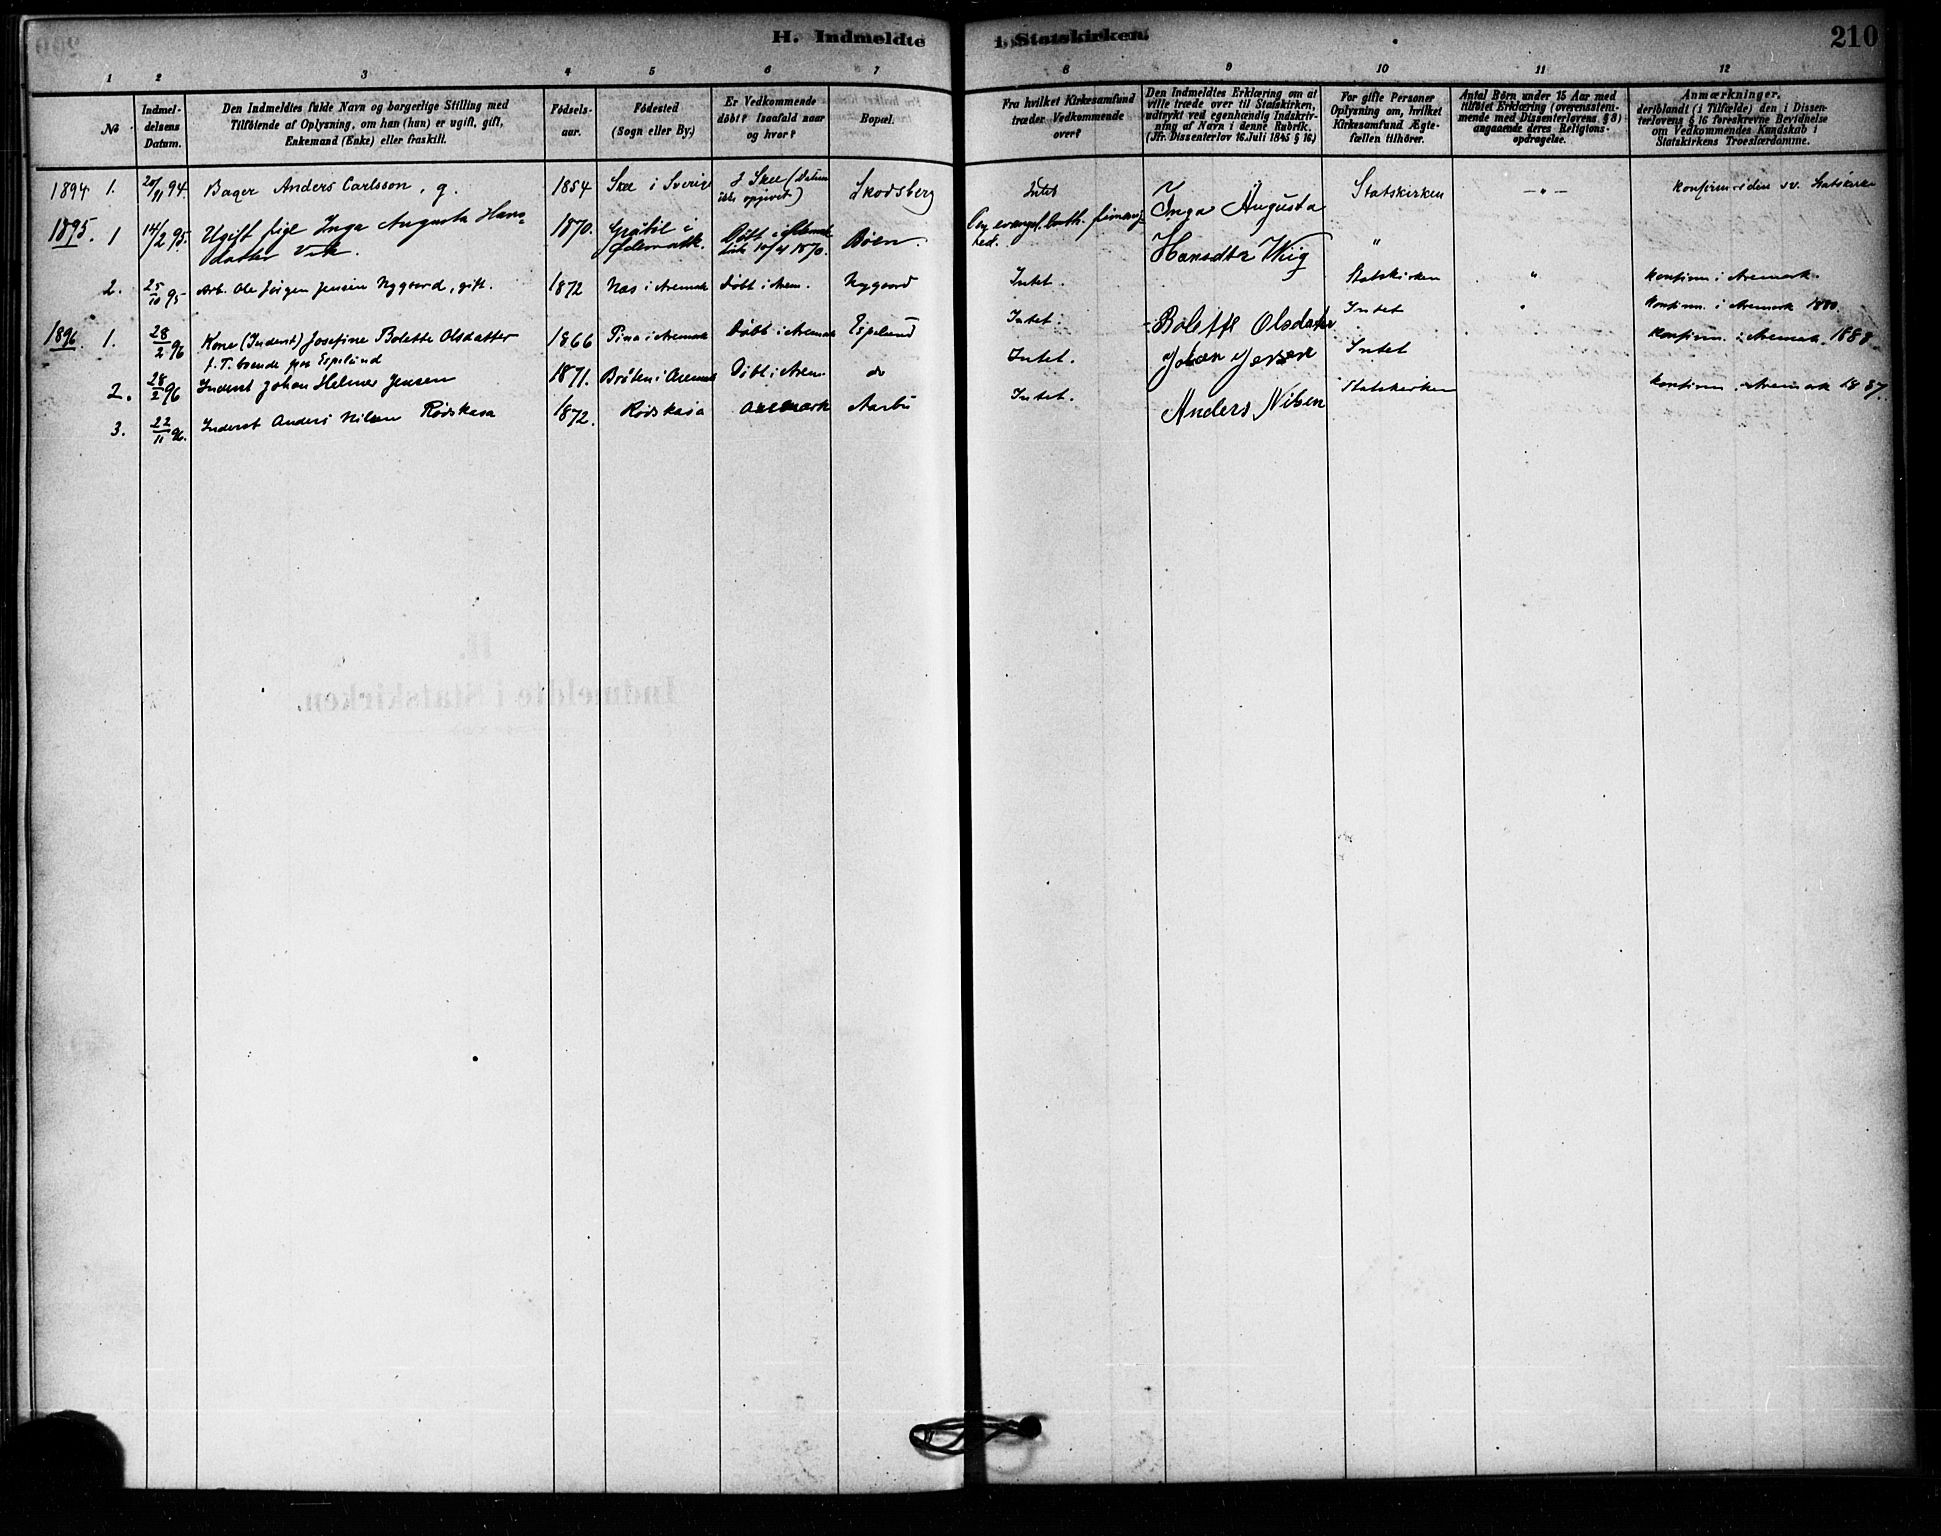 H. Indmeldte i Statskirken.
210
1 2 3 4 5 6 7 8 9 10 11 12
No
Indmel-
delsens
Datum.
Den Indmeldtes fulde Navn og borgerlige Stilling med
Tilføiende af Oplysning, om han (hun) er ugift, gift,
Enkemand (Enke) eller fraskilt.
Fødsels-
aar.
Fødested
(Sogn eller By.)
Er Vedkommende
døbt? Isaafald naar
og hvor?
Bopæl.
Fra hvilket Kirkesamfund
træder Vedkommende
over?
Den Indmeldtes Erklæring om at
ville træde over til Statskirken,
udtrykt ved egenhændig Indskriv-
ning af Navn i denne Rubrik.
(Jfr. Dissenterlov 16. Juli 1845 § 16.)
For gifte Personer
Oplysning om, hvilket
Kirkesamfund Ægte-
fællen tilhører.
Antal Børn under 15 Aar med
tilføiet Erklæring (overensstem-
mende med Dissenterlovens § 8)
angaaende deres Religions-
opdragelse.
Anmærkninger,
deriblandt (i Tilfælde) den i Dissen-
terlovens § 16 foreskrevne Bevidnelse
om Vedkommendes Kundskab i
Statskirkens Troeslærdomme.
1894 1. 20/11 94. Bager Anders Carlsson, g. 1854 Skee i Sverige i Skee (Datum
ikke opgivet) Skodsberg Intet Statskirken — " — konfirm. i den sv. Statskirke
1895. 1 14/2 95. Ugift Pige Inga Augusta Hans-
datter Vik. 1870. i
Døbt i 10/4 1870. Bøen. evangl. luth. Inga Augusta
Hansdtr Wiig "
2. 25/10 95 Arb. Ole Jørgen Jensen Nygaard, gift. 1872 Næs i Aremark døbt i Arem. Nygaard Intet. Statskirken " konfirm. i Aremark.
1896 1. 28/2 96 Kone (Inderst) Josefine Bolette Olsdatter
f. T. boende paa Espelund 1866 i Aremark Døbt i Aremark Espelund Intet. Bolette Olsdatter Intet " konfirm. i Aremark 1880.
2. 28/2 96 Inderst Johan Helmer Jensen 1871. Bråten i Aremark Døbt i Arem. do Intet. Johan Jensen Intet konfirm. i Aremark. 1888
3. 22/11 96. Inderst Anders Nilsen Rødskasa 1872. Rødskasa Aremark Aarbu Intet. Anders Nilsen Statskirken konfirm. Aremark 1887.